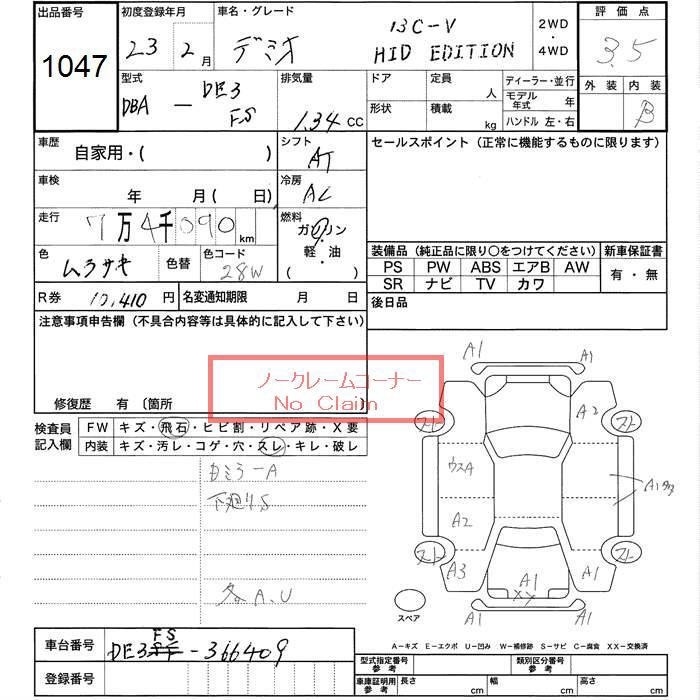 出品番号
1047
初度登録年月
23 2月
車名・グレード
デミオ
13C-V
HID EDITION
2WD
・
4WD
評価点
3.5
外装 内装
B
型式
DBA － DE3FS
排気量
1.34 cc
ドア 定員 人
形状 積載 kg
ディーラー・並行
モデル年式 年
ハンドル 左・右
車歴
自家用・( )
シフト
AT
車検
年 月( 日)
冷房
AC
走行
7万4千090km
燃料
ガソリン
・
軽・油
( )
色
ムラサキ
色替
色コード
28W
R券 12,410円
名変通知期限 月 日
セールスポイント（正常に機能するものに限ります）
装備品（純正品に限り○をつけてください）
新車保証書
PS PW ABS エアB AW
SR ナビ TV カワ
有・無
後日品
注意事項申告欄（不具合内容等は具体的に記入して下さい）
ノークレームコーナー
No Claim
修復歴 有 〔箇所
検査員
記入欄
FW キズ・飛石・ヒビ割・リペア跡・X要
内装 キズ・汚レ・コゲ・穴・スレ・キレ・破レ
下廻りS
各A、U
A1 A1
A2
スト スト
ウスA
A2
スト スト
A3 A1 A1
XX
A1 A1
スペア
A－キズ E－エクボ U－凹み W－補修跡 S－サビ C－腐食 XX－交換済
車台番号
DE3FS-366409
登録番号
型式指定番号
参考
類別区分番号
参考
車庫証明用
参考
長さ cm
幅 cm
高さ cm